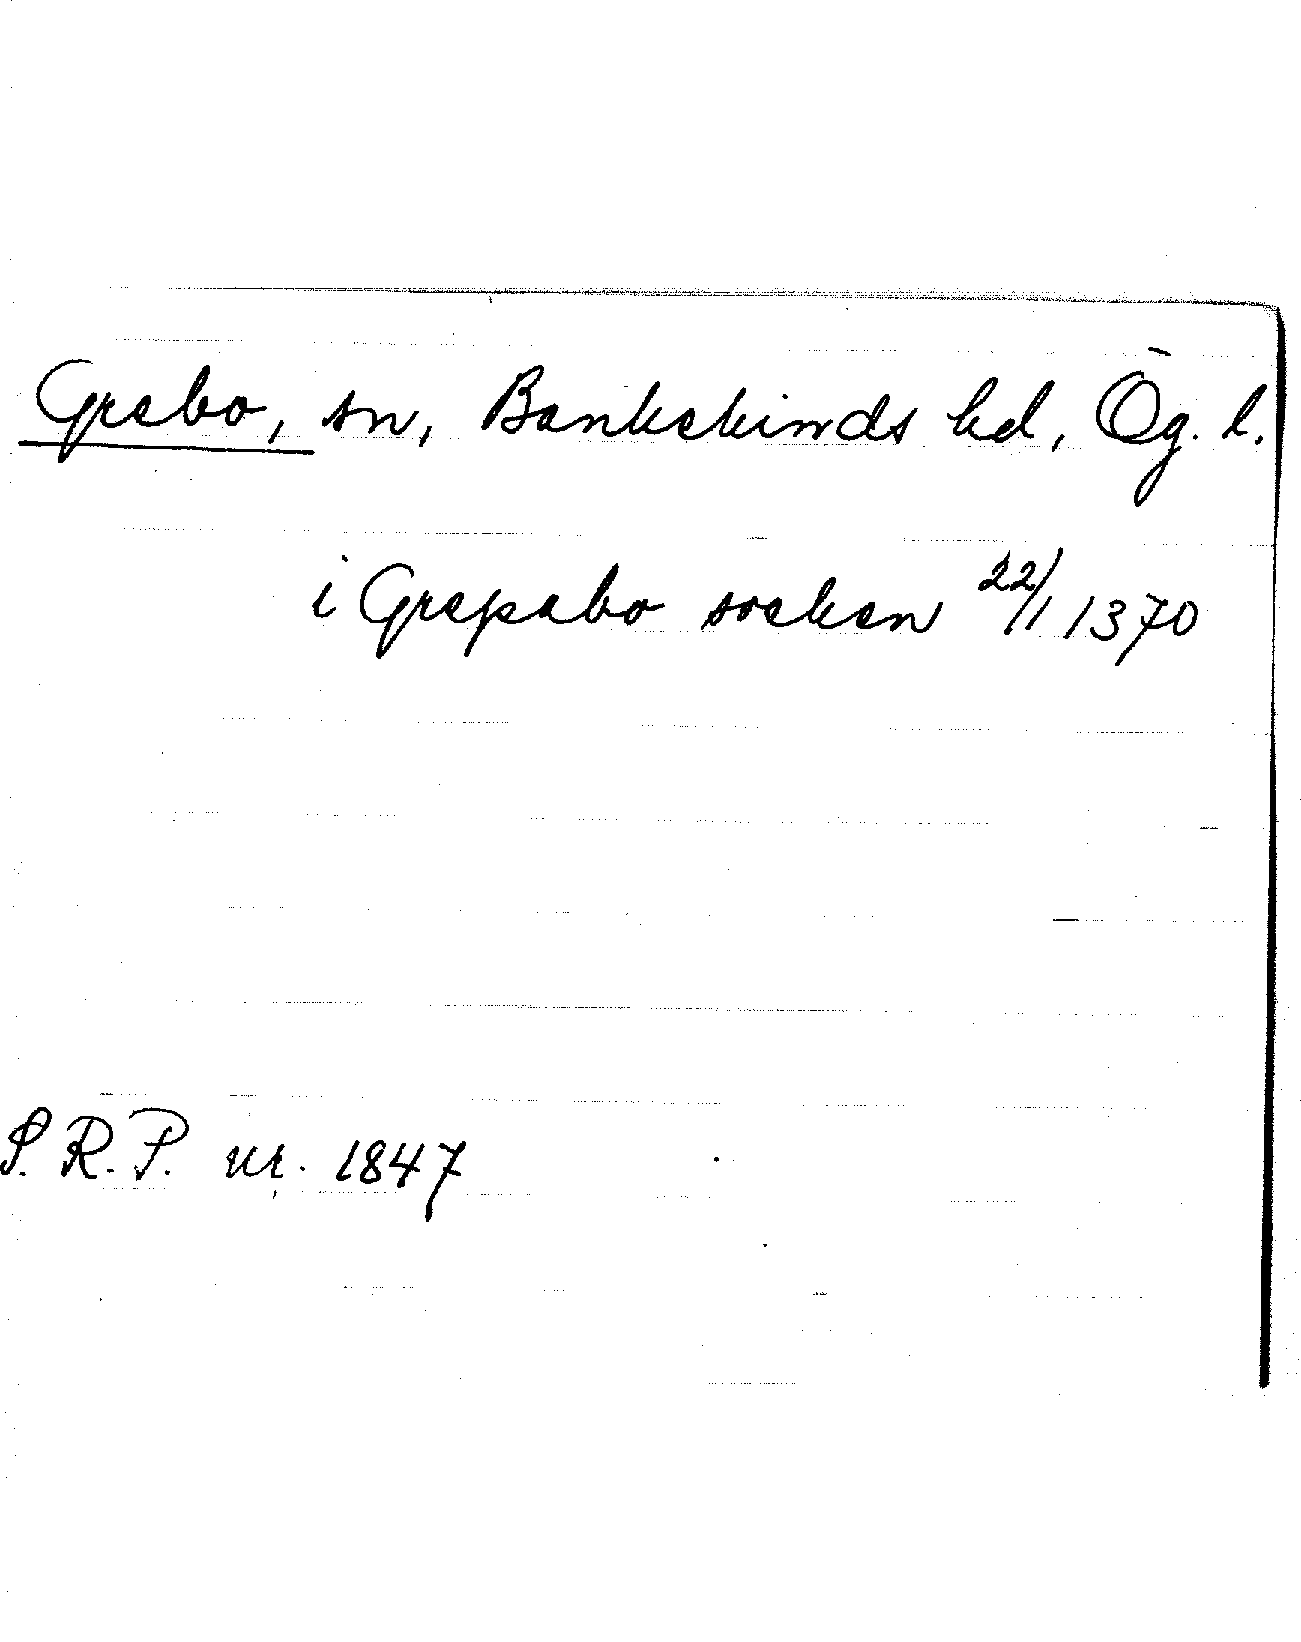 Grebo, sn, Bankekinds hd, Ög. l.
i Grepabo socken 22/1 1370
S.R.P. nr. 1847